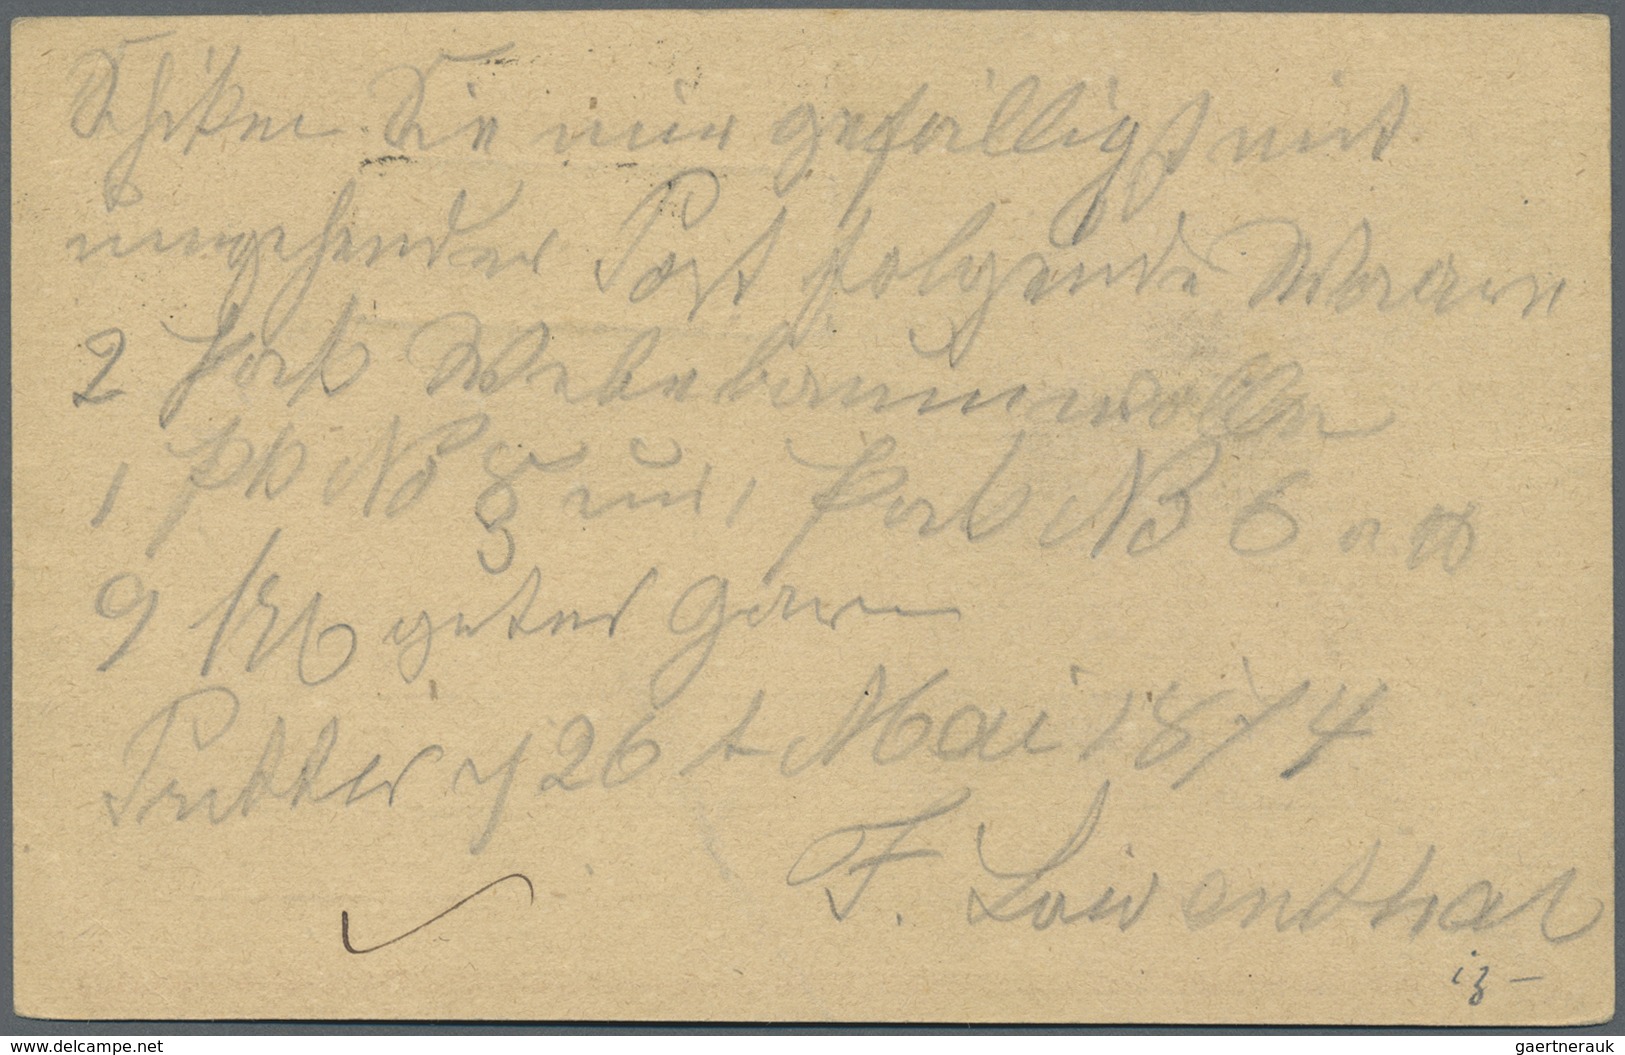 Schiken Sie mir gefälligst mit
umgehender Post folgende Waaren
2 Pack Webebaumwollen
1 Pk No 8 und 1 Pack No 6
9 gutes Garn
Pretter 26 t Mai 1874
F. Loiwenthal
iz –
www.delcampe.net
gaertnerauk